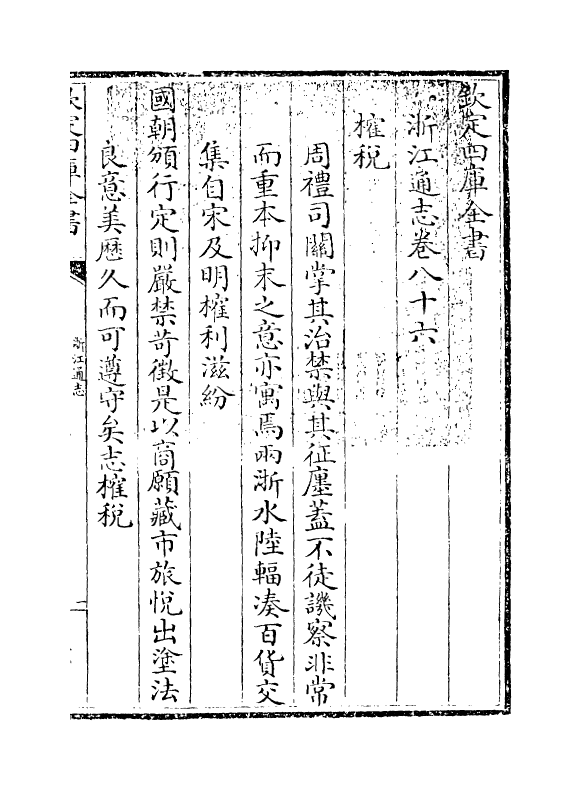 欽定四庫全書
浙江通志卷八十六
榷稅
周禮司關掌其治禁與其征廛蓋不徒譏察非常
而重本抑末之意亦寓焉兩浙水陸輻湊百貨交
集自宋及明榷利滋紛
國朝頒行定則嚴禁苛徴是以商願藏市旅悅出塗法
良意美歴久而可遵守矣志榷稅
欽定四庫全書
浙江通志
一